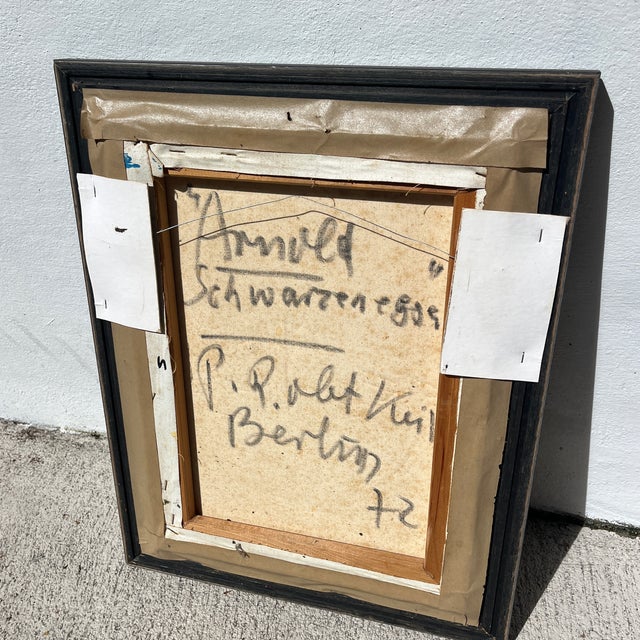 "Arnold
Schwarzenegger"
P. Robert Keil
Berlin
72